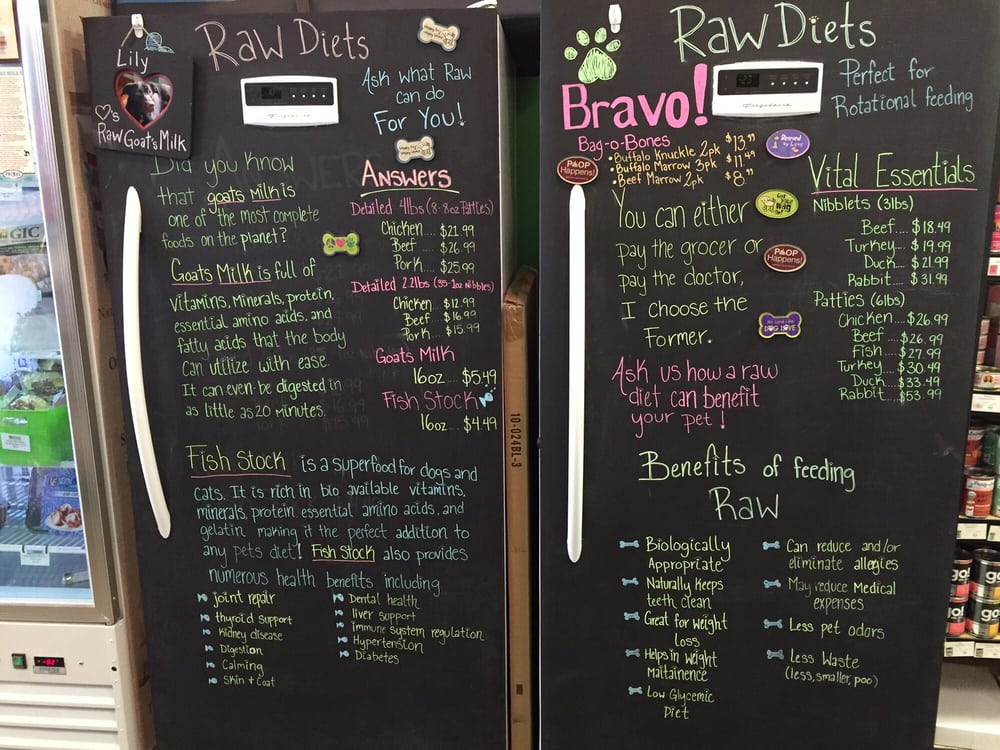 Lily
♡'s
Raw Goat's Milk
Raw Diets
Frigidaire
Ask what Raw
can do
For You!
Did you know
that goats Milk is
one of the most complete
foods on the planet?
Goats Milk is full of
vitamins, Minerals, protein,
essential amino acids, and
fatty acids that the body
can utilize with ease.
It can even be digested in
as little as 20 minutes.
Answers
Detailed 4lbs (8-8oz Patties)
Chicken.... $21.99
Beef .... $26.99
Pork.... $25.99
Detailed 2.2lbs (35-1oz Nibbles)
Chicken .... $12.99
Beef .... $16.99
Pork.... $15.99
Goats Milk
16oz .... $5.49
Fish Stock
16oz .... $4.49
Fish Stock is a superfood for dogs and
cats. It is rich in bio available vitamins,
minerals, protein, essential amino acids, and
gelatin, making it the perfect addition to
any pets diet! Fish Stock also provides
numerous health benefits including
joint repair
thyroid support
Kidney disease
Digestion
Calming
Skin + Coat
Dental health
liver support
immune system regulation
Hypertension
Diabetes
10-024BL-3
Raw Diets
Frigidaire
Perfect for
Rotational feeding
Bravo!
Bag-o-Bones
• Buffalo Knuckle 2pk $13.99
• Buffalo Marrow 3pk $11.49
• Beef Marrow 2pk $8.99
POOP
Happens!
You can either
pay the grocer or
pay the doctor,
I choose the
Former.
POOP
Happens!
DOG LOVE
Ask us how a raw
diet can benefit
your pet!
Vital Essentials
Nibblets (3lbs)
Beef.... $18.49
Turkey.... $19.99
Duck.... $21.99
Rabbit.... $31.99
Patties (6lbs)
Chicken.... $26.99
Beef.... $26.99
Fish.... $27.99
Turkey.... $30.49
Duck.... $33.49
Rabbit.... $53.99
Benefits of feeding
Raw
Biologically
Appropriate
Naturally Keeps
teeth clean
Great for weight
loss
Helps in weight
Maitainence
Low Glycemic
Diet
Can reduce and/or
eliminate allegies
May reduce Medical
expenses
Less pet odors
Less Waste
(less, smaller, poo)
GIC
go!
go!
go!
go!